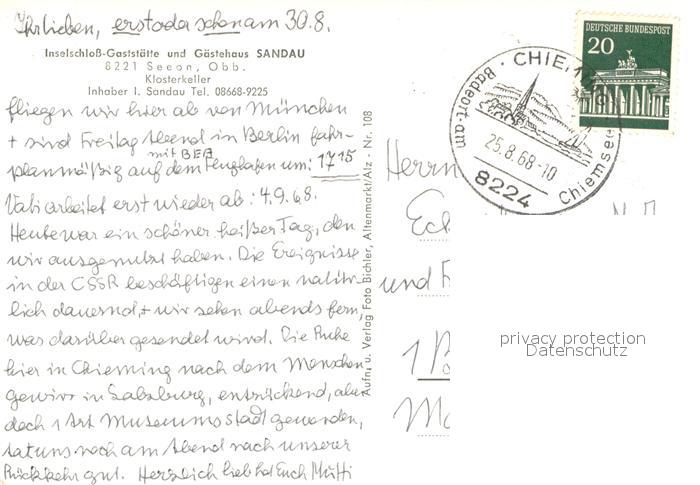 Ihr lieben, erst oder schon am 30.8.
Inselschloß-Gaststätte und Gästehaus SANDAU
8221 Seeon, Obb.
Klosterkeller
Inhaber I. Sandau Tel. 08668-9225
fliegen wir hier ab von München
+ sind Freitag Abend in Berlin fahr-
mit BEA
planmäßig auf dem Flughafen um: 17 15
Vati arbeitet erst wieder ab: 4.9.68.
Heute war ein schöner heißer Tag, den
wir ausgenutzt haben. Die Ereignisse
in der CSSR beschäftigen einen natür-
lich dauernd + wir sehen abends fern,
was darüber gesendet wird. Die Ruhe
hier in Chieming nach dem Menschen
gewirr in Salzburg, entzückend, aber
doch 1 Art Museumsstadt geworden,
tat uns noch am Abend nach unserer
Rückkehr gut. Herzlich lieb hat Euch Mutti
Aufn. u. Verlag Foto Bichler, Altenmarkt/Alz - Nr. 108
DEUTSCHE BUNDESPOST
20
CHIEMING
Badeort am Chiemsee
25.8.68-10
8224
Herrn
und
1
privacy protection
Datenschutz